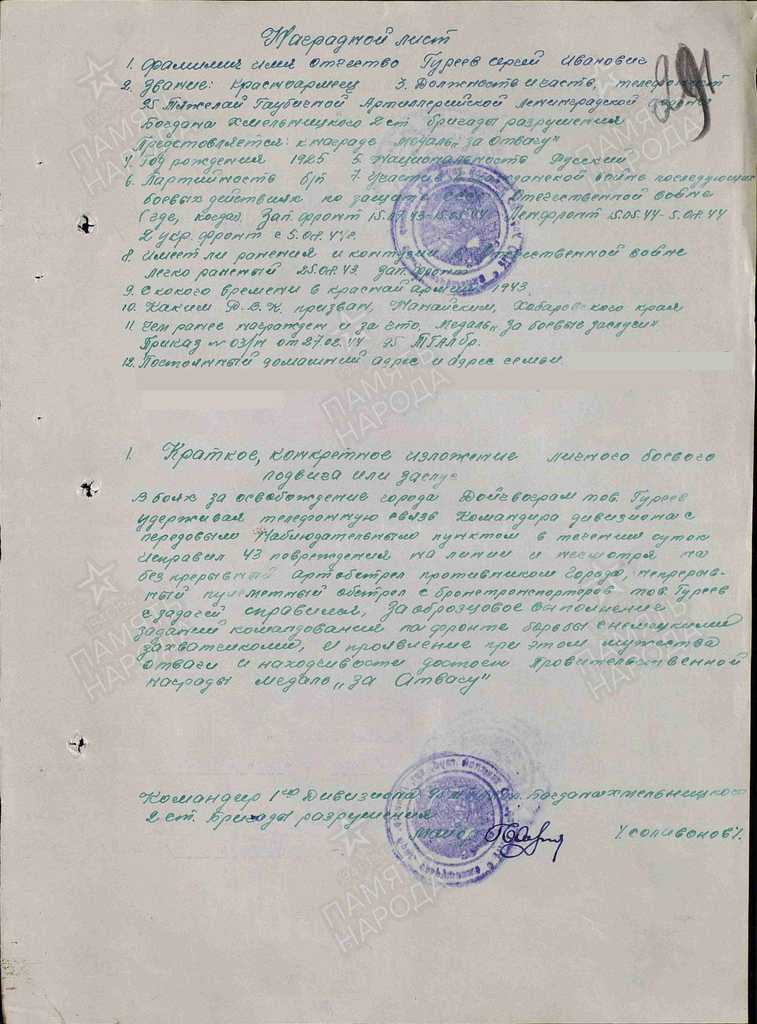 Наградной лист
1. Фамилия имя отчество Гуреев Сергей Иванович
2. Звание: Красноармеец 3. Должность и часть, телефонист
95 Тяжелой Гаубичной Артиллерийской Ленинградской ордена
Богдана Хмельницкого 2 ст. бригады разрушения
Представляется: к награде Медаль „За Отвагу"
4. Год рождения 1925 5. Национальность Русский
6. Партийность б/п 7. Участие в гражданской войне последующих
боевых действиях по защите СССР Отечественной войне
(где, когда). Зап. фронт 15.07.43-15.05.44 Ленфронт 15.05.44-5.07.44
2 укр. фронт с 5.07.44г.
8. Имеет ли ранения и контузии в отечественной войне
легко раненый 25.07.43 Зап. фронт
9. С какого времени в красной армии 1943.
10. Каким Р.В.К. призван, Нанайским, Хабаровского края
11. Чем ранее награжден и за что, Медаль „За боевые заслуги"
Приказ № 03/н от 27.02.44 95 ТГАБр.
12. Постоянный домашний адрес и адрес семьи.
1. Краткое, конкретное изложение личного боевого
подвига или заслуг
В боях за освобождение города тов. Гуреев
удерживая телефонную связь Командира дивизиона с
передовым Наблюдательным пунктом в течении суток
исправил 43 повреждения на линии и несмотря на
безпрерывный артобстрел противником города, непрерыв-
ный пулеметный обстрел с бронетранспортеров тов. Гуреев
с задачей справился, За образцовое выполнение
заданий командования на фронте борьбы с немецкими
захватчиками, и проявление при этом мужества
отваги и находчивости достоен Правительственной
награды Медаль „За Отвагу"
Командир 1го Дивизиона Богдана Хмельницкого
2 ст. Бригады разрушения
майор /Соливонов/.
ПАМЯТЬ НАРОДА